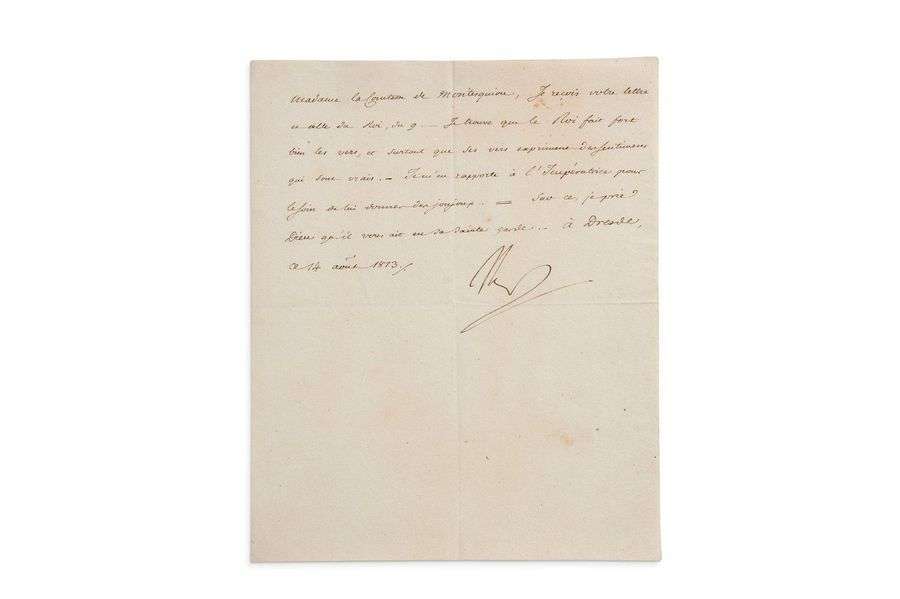 Madame la Comtesse de Montesquiou, Je reçois votre lettre
et celle du Roi, du 9. — Je trouve que le Roi fait fort
bien les vers, et surtout que ses vers expriment des sentimens
qui sont vrais. — Je m'en rapporte à l'Impératrice pour
le soin de lui donner des joujoux. — Sur ce, je prie
Dieu qu'il vous ait en sa sainte garde. — à Dresde,
ce 14 août 1813